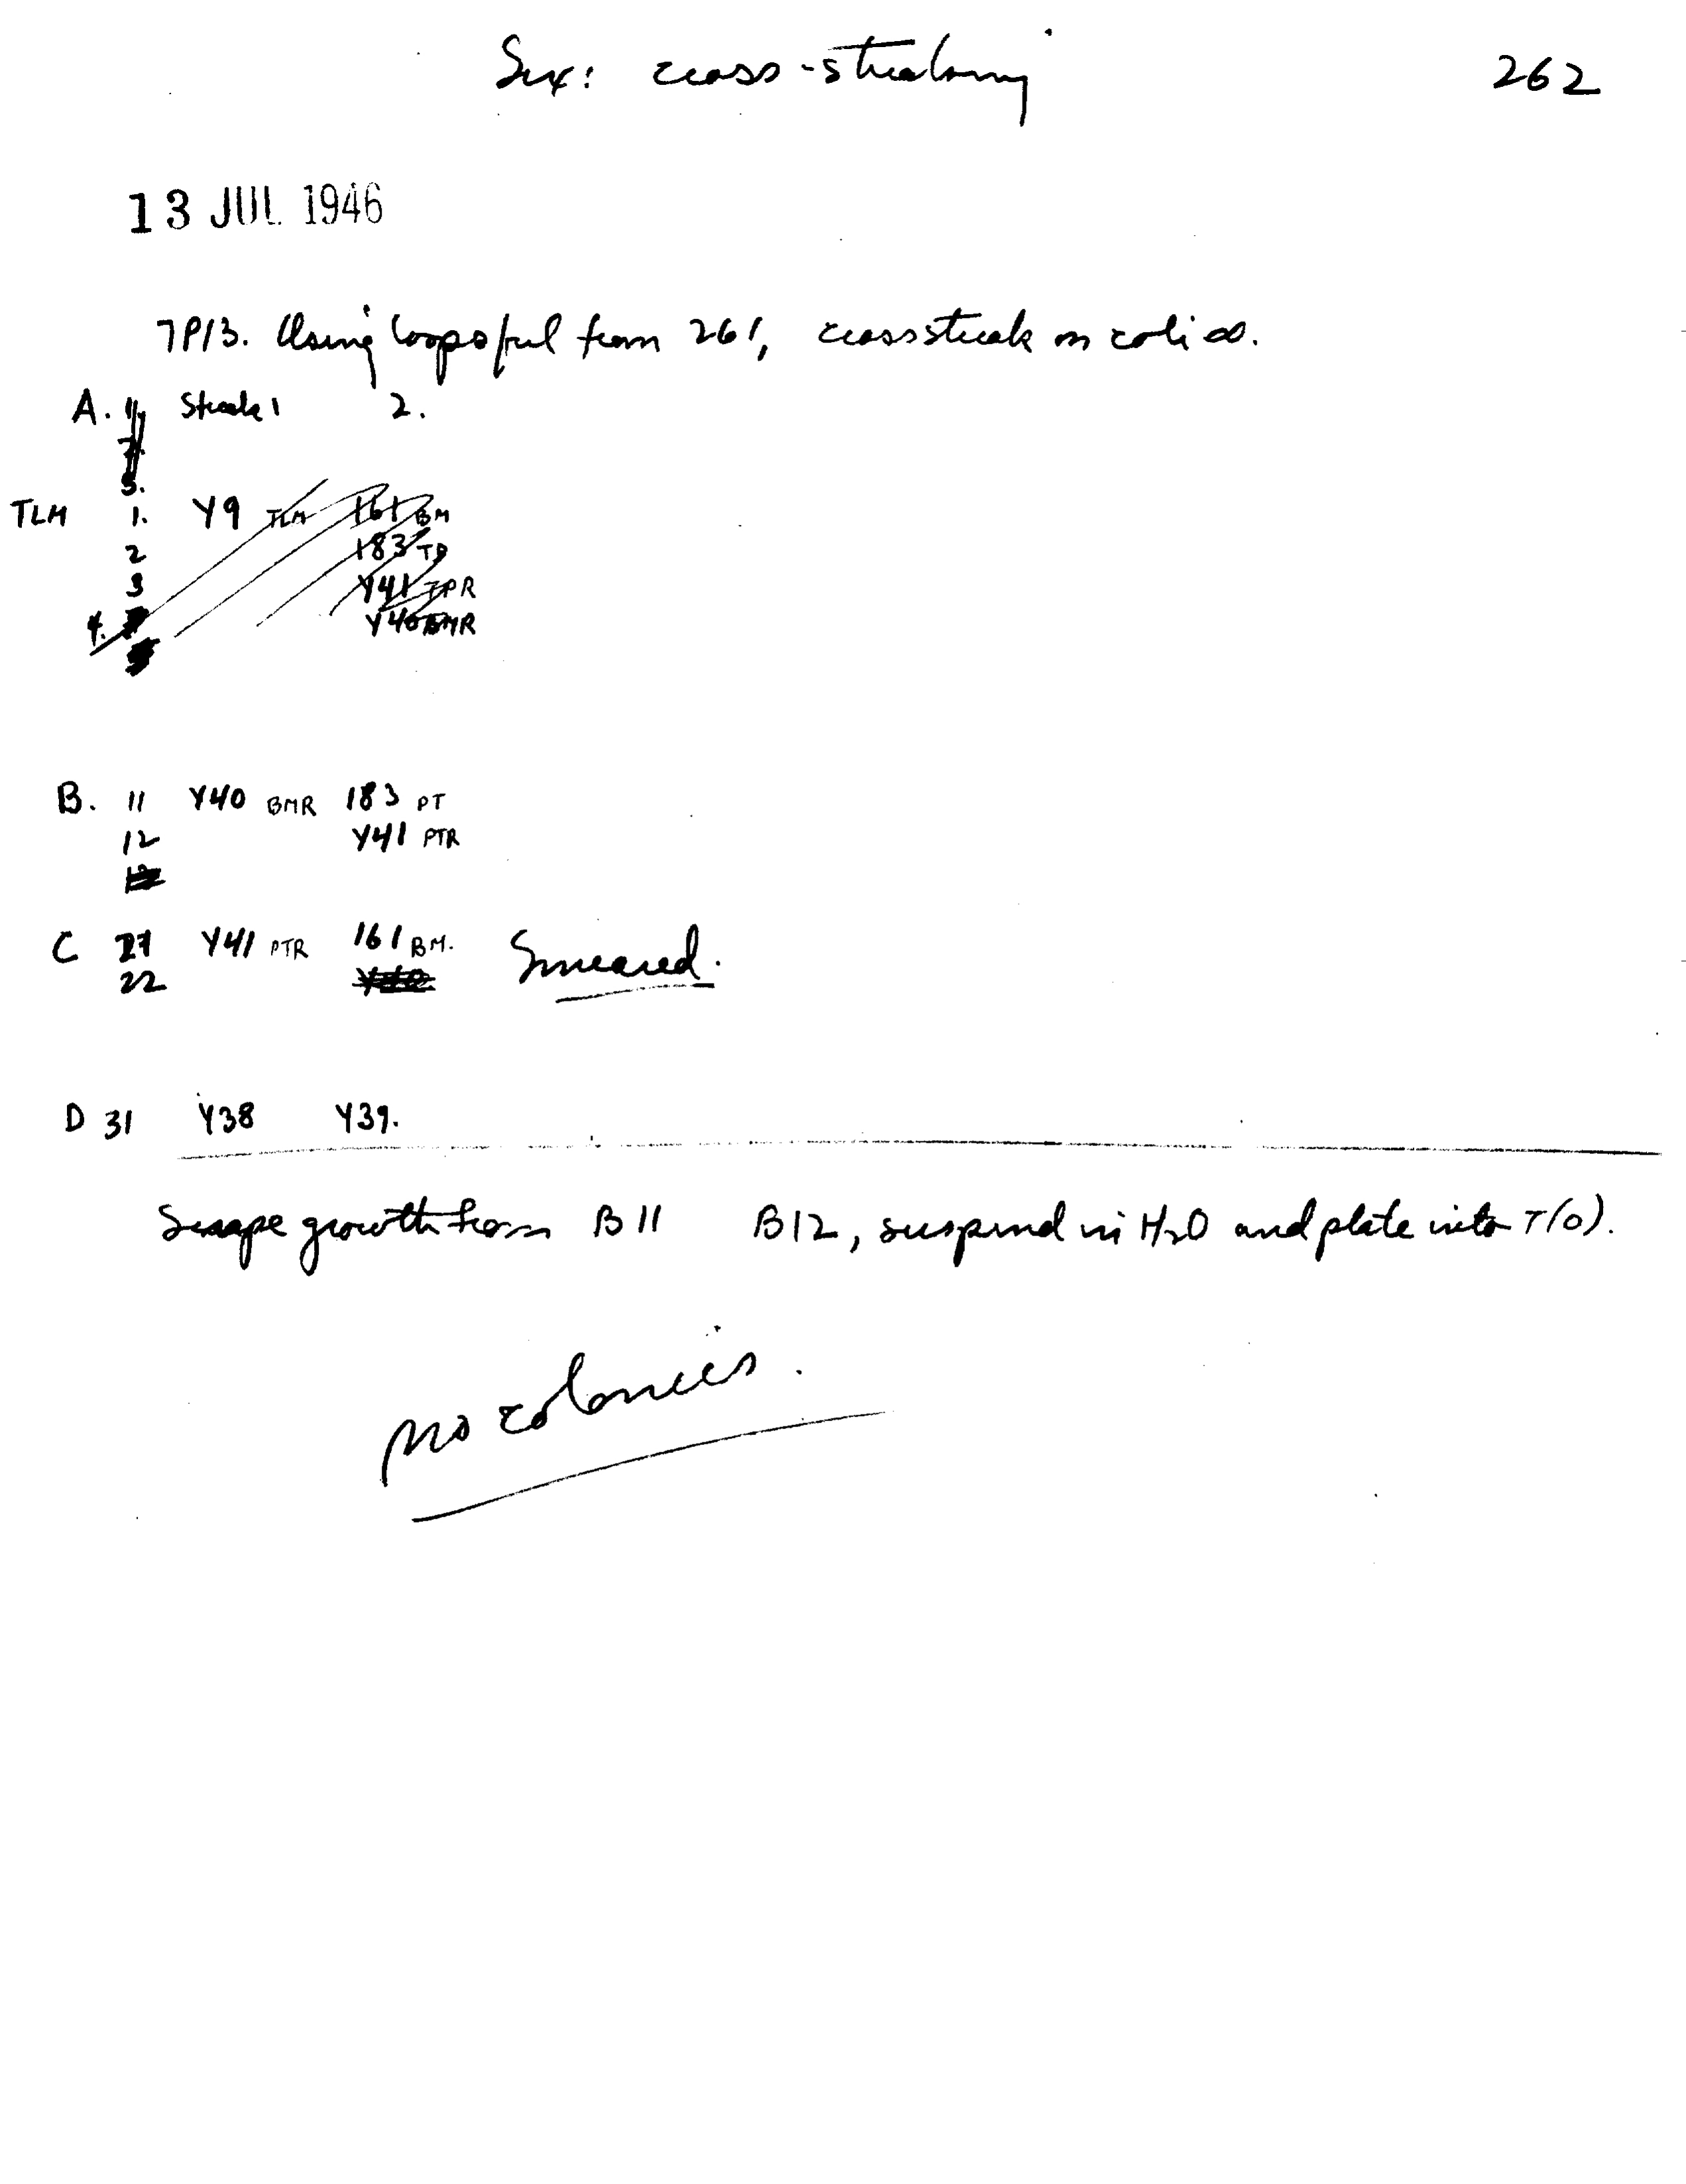 Sex: cross-streaking 262
13 JUL 1946
7P13. Using loopsful from 261, cross streak on coli ∞.
A. Streak 1 2.
3.
TLM 1. Y9 TLM 161 BM
2 183 TP
3 Y41 TPR
4. Y40 BMR
B. 11 Y40 BMR 183 PT
12 Y41 PTR
C 21 Y41 PTR 161 BM. Smeared.
22 Y40
D 31 Y38 Y39.
Scrape growth from B11 B12, suspend in H2O and plate into T(0).
no colonies.